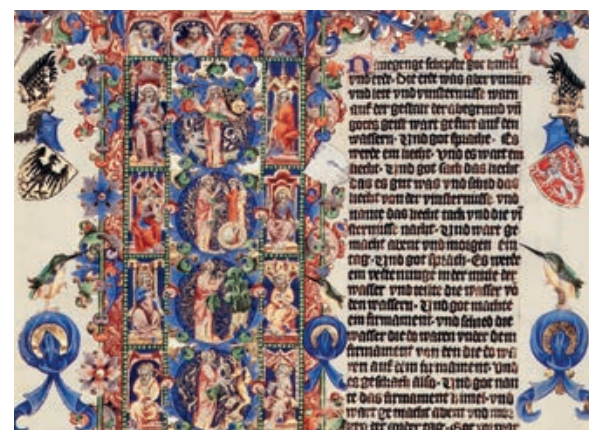 N anegenge schepfte got himel
vnd erde. Die erde was aber vnnucz
vnd lere vnd vinsternusse warn
auf der gestalt der abegrund vñ
gotes geist wart gefurt auf den
wassern. Vnd got sprache. Es
werde ein liecht. Vnd es wart ein
liecht. Vnd got sach das liecht
das es gut was vnd schid das
liecht von der vinsternusse. vnd
nante das liecht tack vnd die vi
sternusse nacht. Vnd wart ge
macht abent vnd morgen ein
tag. Vnd got sprach. Es werde
ein vestenunge in der mitte der
wasser vnd teilte die wasser vō
den wassern. Vnd got machte
ein firmament. vnd schied die
wasser die do waren vnder dem
firmament von den die do wa
ren auf dem firmament. Vnd
es geschach also. Vnd got nan
te das firmament himel. vnd
wart gemacht abent vnd mor
der ander tag. Got